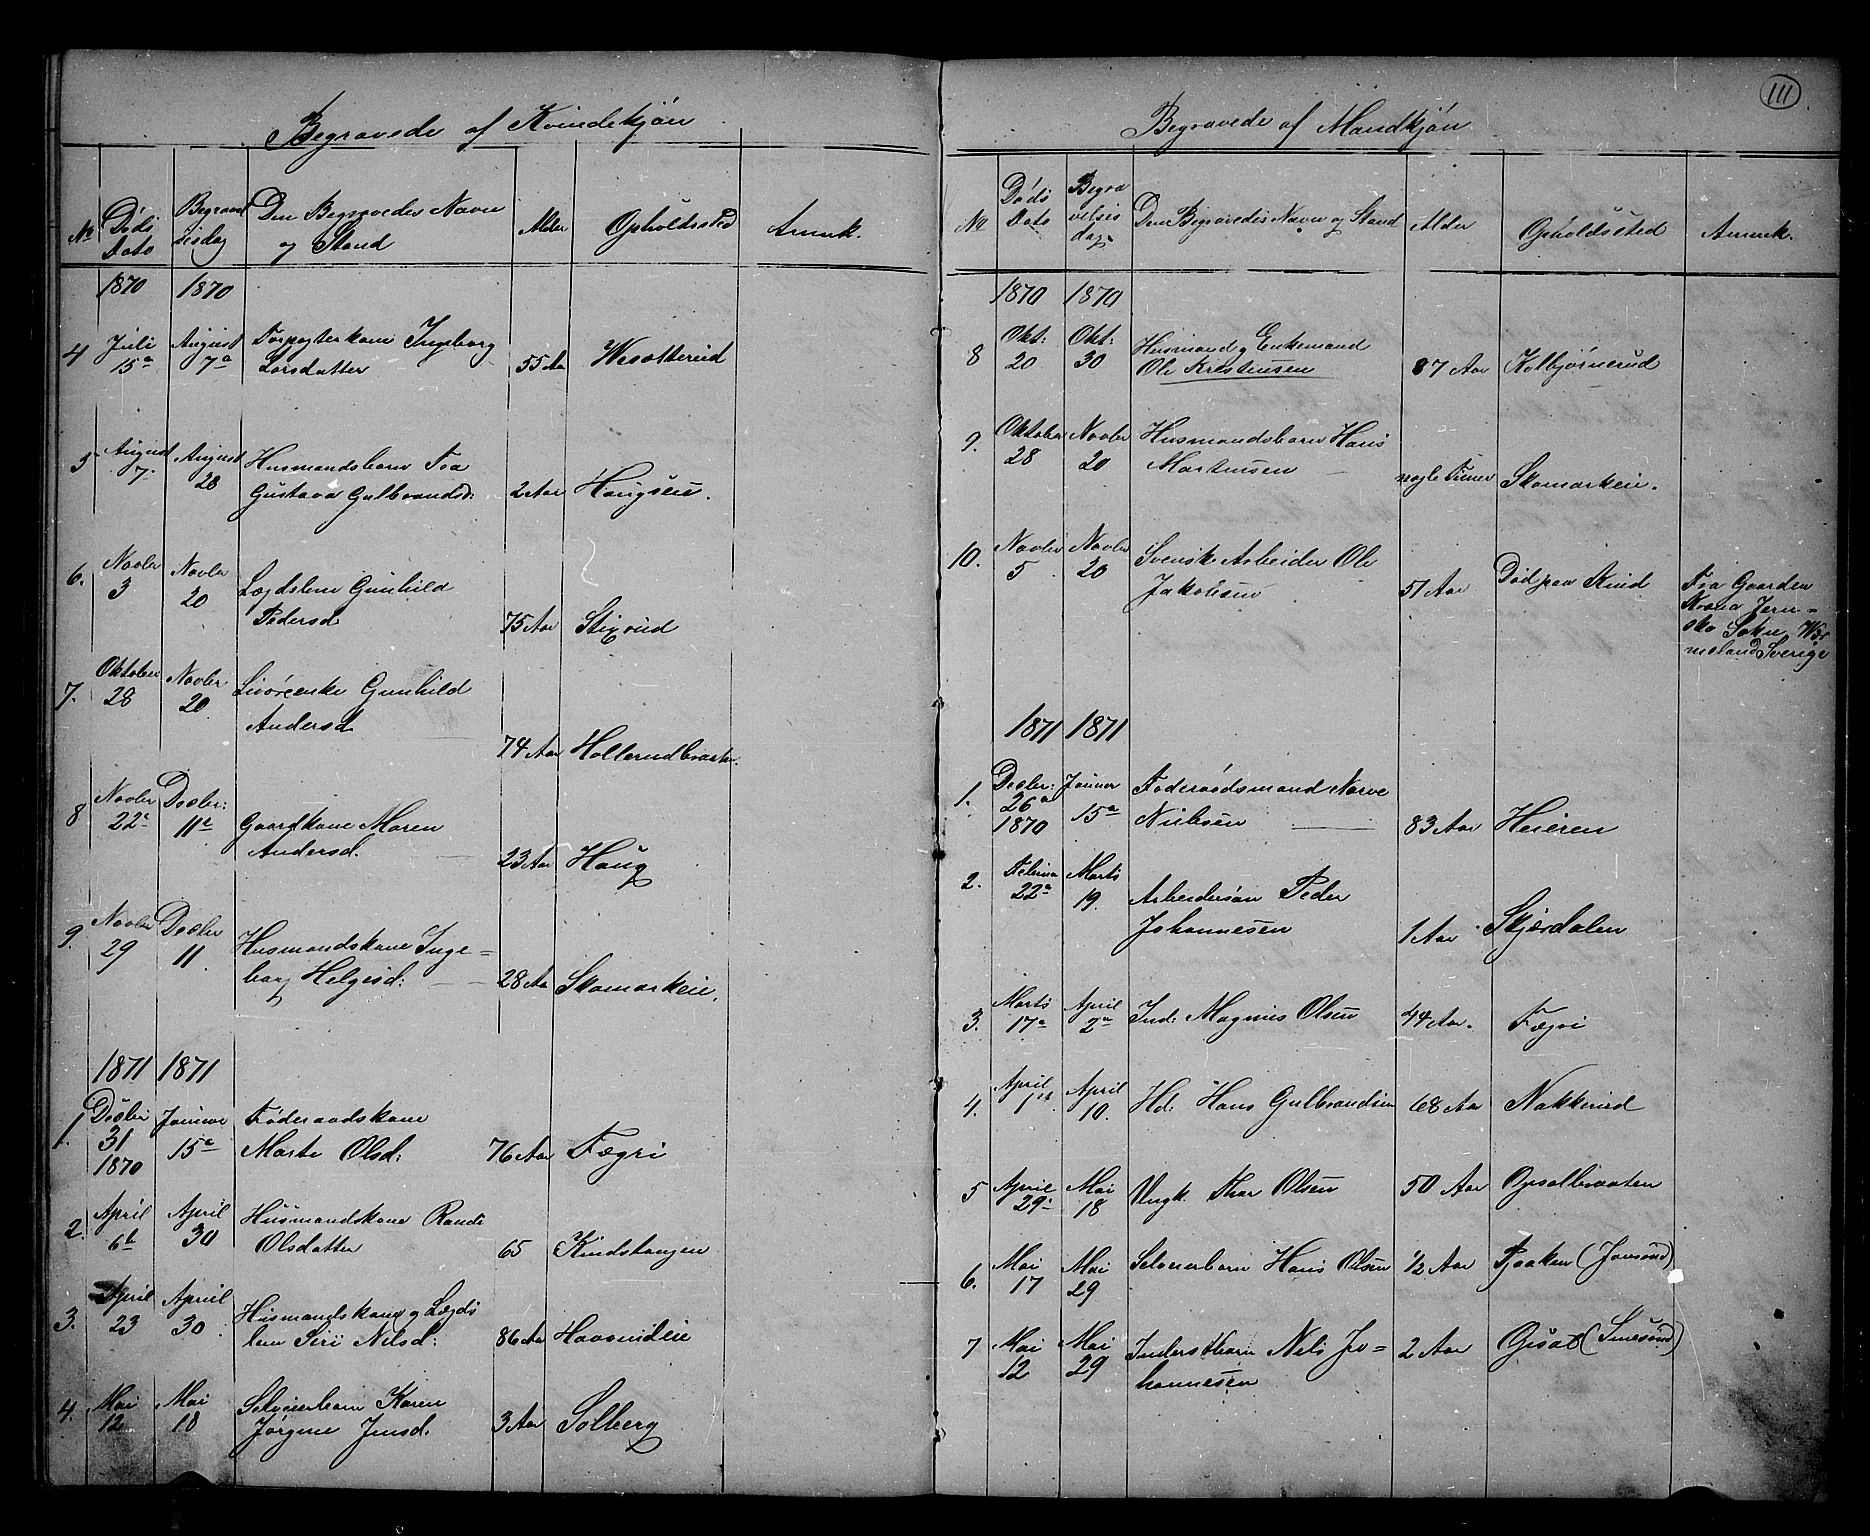 Begravede af Kvindekjøn
No
Døds Dato
Begravelsesdag
Den Begravedes Navn
og Stand
Alder
Opholdssted
Anmrk.
1870 1870
4 Juli 15a August 7a Forpagterkone Ingeborg
Larsdatter 55 Aar
5 August 7 August 28 Husmandsbarn
Gustava Gulbrandsd: 2 Aar Haugseie.
6. Novbr 3 Novbr 20 Lægdslem Gunhild
Pedersd 75 Aar Stixrud
7. Oktober 28 Novbr 20 Gunhild
Andersd 74 Aar Hollerudbraaten.
8 Novbr 22 Decbr: 11 Gaardkone Maren
Andersd. 23 Aar Haug
9. Novbr 29 Decbr 11 Husmandskone Inge=
borg Helgesd: 28 Aar Skamarkeie.
1871 1871
1. Decbr 31 1870 Januar 15a Føderaadskone
Marte Olsd: 76 Aar Fægri
2. April 6 April 30 Husmandskone Randi
Olsdatter 65 Kindstangen
3. April 23 April 30 Husmandskone og Lægds
lem Siri Nilsd: 86 Aar
4. Mai 12 Mai 18 Selveierbarn Karen
Jørgine Jensd. 3 Aar Solberg
111
Begravede af Mandkjøn
No
Døds Dato
Begravelsesdag
Den Begravedes Navn og Stand
Alder
Opholdssted
Anmrk.
1870 1870
8 Okt: 20 Okt: 30 Husmand og Enkemand
Ole Kristensen 87 Aar Kolbjørnerud
9. Oktober 28 Novbr 20 Husmandsbarn Hans
Martinsen nogle Timer Skamarkeie.
10. Novbr 5 Novbr 20 Svensk Arbeider Ole
Jakobsen 51 Aar Død paa Kind Fra Gaarden
Sokn, Wer
meland Sverige
1871 1871
1. Decbr: 26a 1870 Januar 15a Føderaadsmand Narve
Nielsen 83 Aar Heieren
2. Februar 22a Marts 19. Arbeidersøn Peder
Johannesen 1 Aar Skjærdalen
3. Marts 17a April 2a Ind: Magnus Olsen 44 Aar. Fægri
4. April 1 April 10. Hd: Hans Gulbrandsen 68 Aar Nakkerud
5 April 29 Mai 18 Ungk. Olsen 50 Aar Opsalbraaten
6. Mai 17 Mai 29 Selveierbarn Hans Olsen 1/2 Aar Pjaaken (Jonsrud)
7 Mai 12 Mai 29 Inderstbarn Nils Jo=
hannesen 2 Aar Opsal